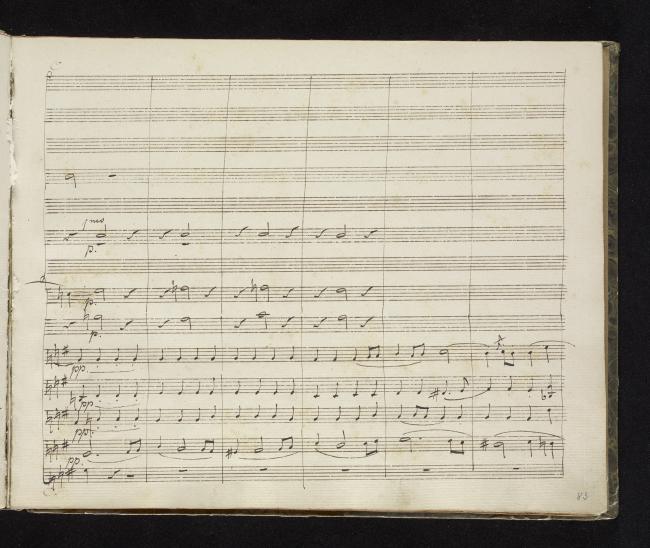 1mo
p.
p.
p.
pp.
pp.
pp.
pp.
83